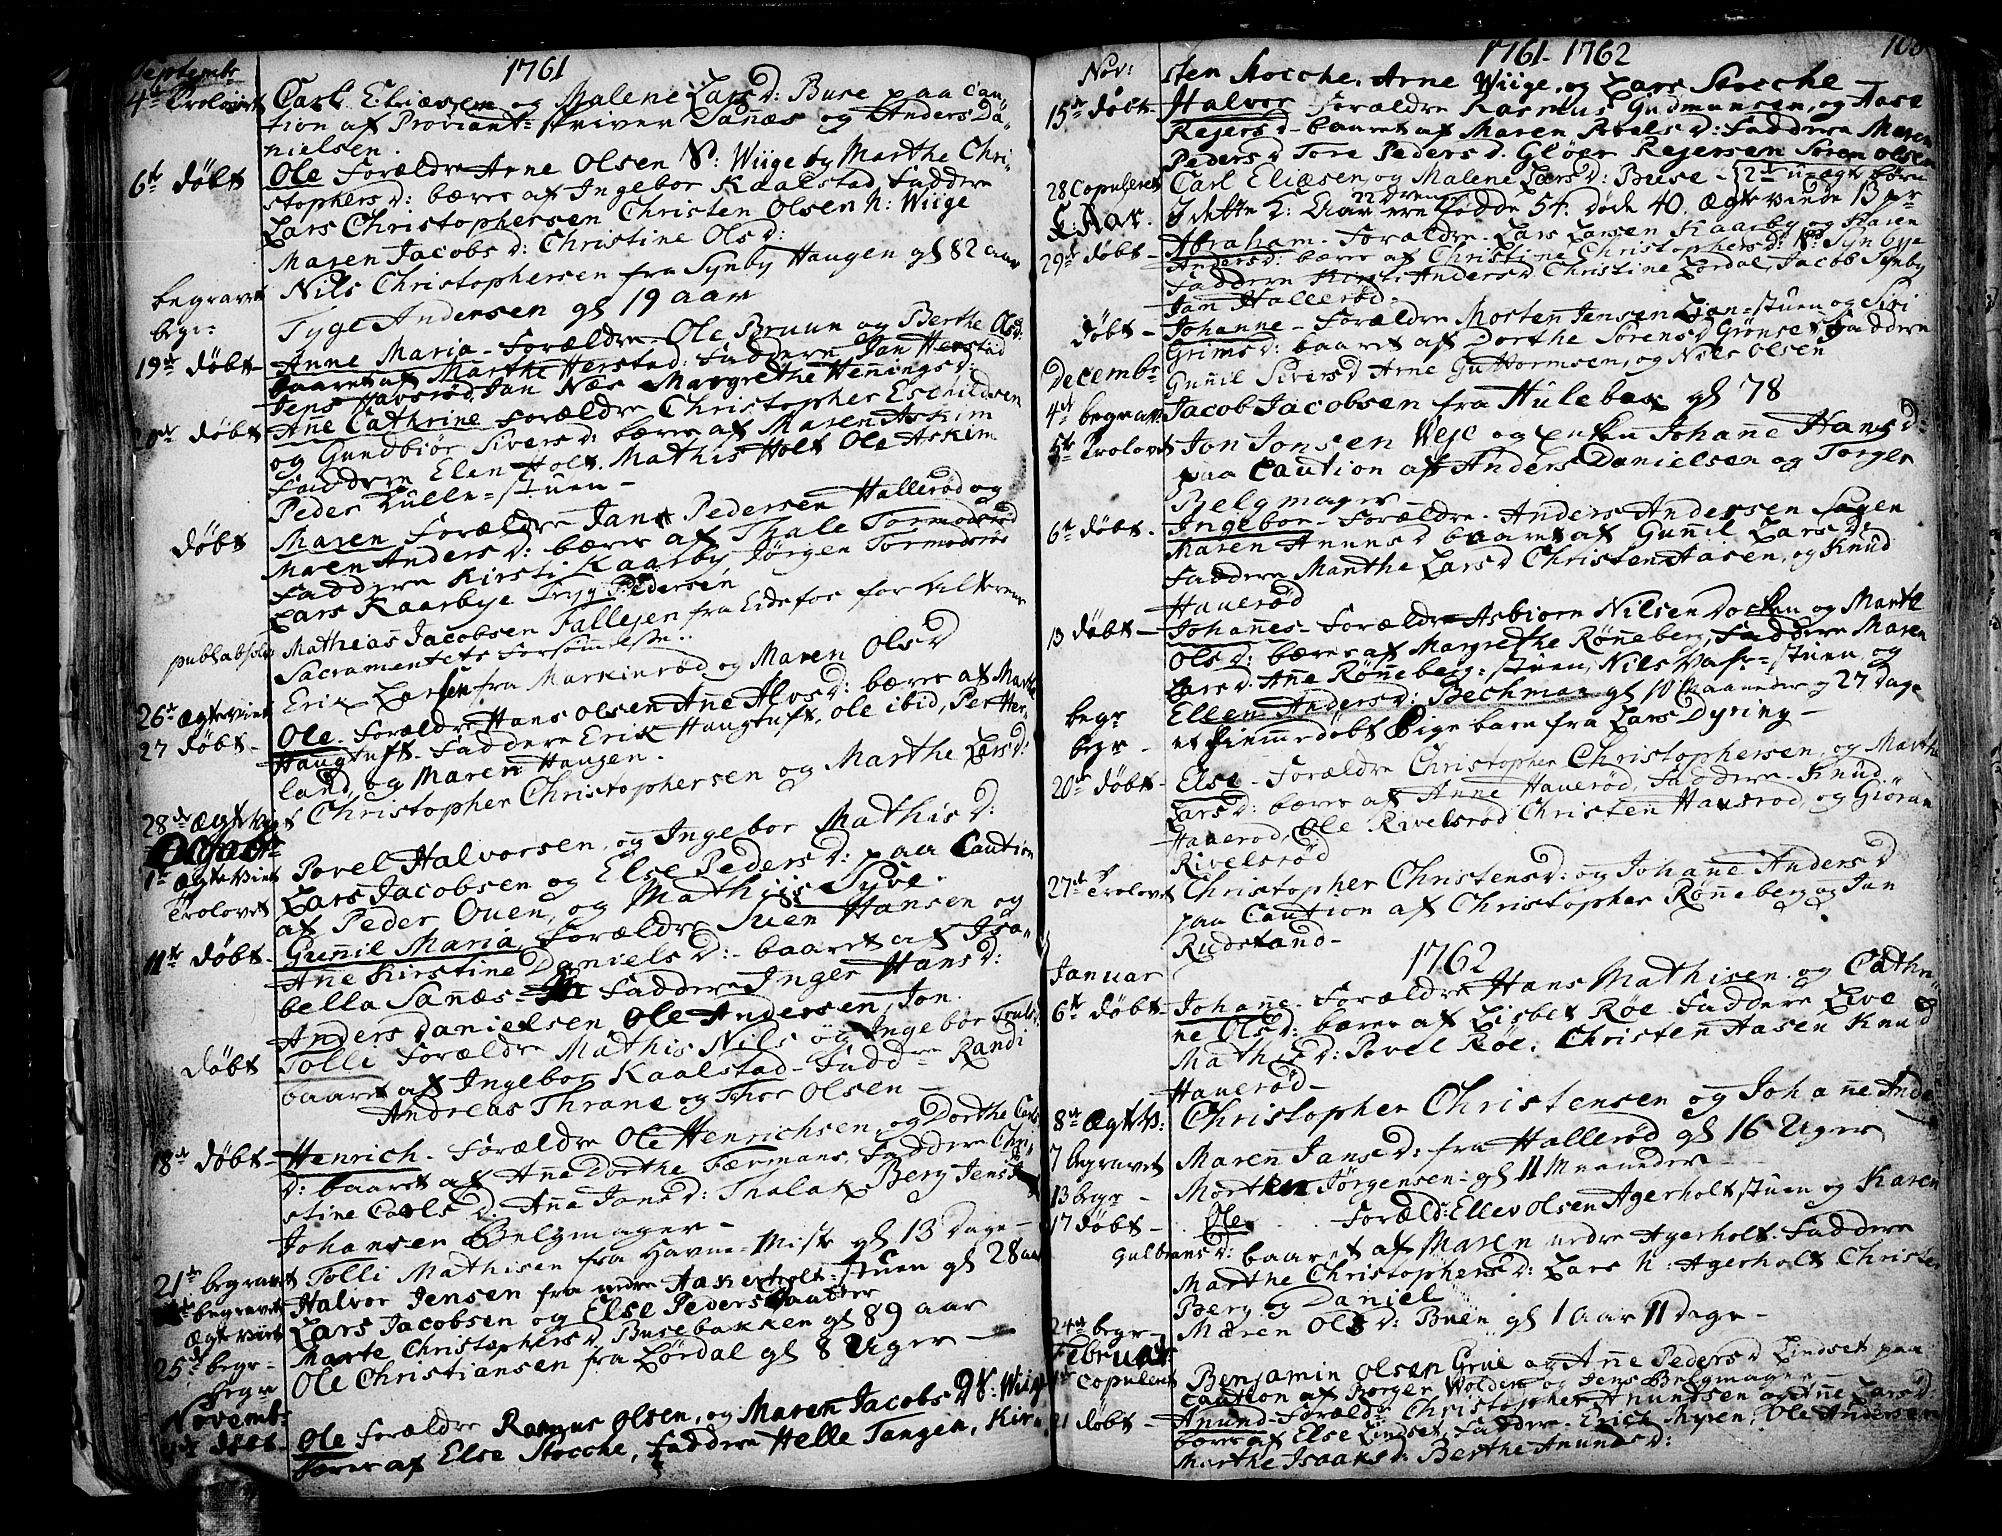 Septembr 1761
4de Trolovet Carl Eliæsen og Malene Larsd: Buse paa Cau-
tion af Proviant-skriver Sanæs og Anders Da-
nielsen.
6te døbt Ole Forældre Arne Olsen N: Wiige og Marthe Chri-
stophersd: bærer af Ingebor Kaalstad Faddere
Lars Christophersen Christen Olsen N: Wiige
Maren Jacobsd: Christine Olsd:
begravet Nils Christophersen fra Synby Haugen gl 82 aar
begr- Tyge Andersen gl 19 aar
19de døbt- Anne Maria- Forældre- Ole Bruun og Berthe Olsd:
baaret af Marthe Herstad: Faddere Jan Herstad
Jens Jan Næs Margrethe Henningsd:
20de døbt Ane Cathrine Forældre Christopher Eschildsen
og Gundbiør Siversd: bærer af Maren Askim
Faddere Elen Holt, Mathis Holt Ole Askim
Peder Lulle-stuen-
døbt Maren Forældre Jan Pedersen Hallerød og
Maren Andersd: bærer af Thale Tormodsrød
Faddere Kirsti Kaarby, Jørgen Tormodsrød
Lars Kaarbye Tryg Pedersen
publ: absolv Mathias Jacobsen Fallesen fra Eidefos for
Sacramentets Forsømmelse..
26de Ægteviet Erik Larsen fra Markinrød og Maren Olsd
27 døbt- Ole- Forældre Hans Olsen Ane Alvsd: bærer af Marthe
Haugtuft- Faddere Erik Haugtuft, Ole ibid, Per Her-
land, og Maren Haugen.
28de Ægteviet Christopher Christophersen og Marthe Larsd:
1te Ægteviet Povel Halvorsen, og Ingebor Mathisd:
Trolovet Lars Jacobsen og Else Pedersd: paa Caution
af Peder Ouen, og Mathiis Syve.
11te døbt- Gunnil Maria, Forældre Suen Hansen og
Ane Kirstine Danielsd:- baaret af Isa-
bella Sanæs- Faddere Inger Hansd:
Anders Danielsen, Ole Andersen, Jon
døbt Tolli Forældre Mathis Nils og Ingebor
baaret af Ingebor Kaalstad- Fadd- Randi
Andreas Thrane og Thor Olsen-
18de døbt- Henrich- Forældre Ole Henrichsen, og Dorthe Carls
d: baaret af Ane Dorthe Færmans, Faddere Chri-
stine Carlsd. Ana Jansd: Thalak Berg Jens
Johansen Belgmager-
21de begravet Tolli Mathisen fra Havne- Miste gl 13 Dage-
begravet Halvor Jensen fra nedre Haverholt-stuen gl 28 aar
Ægteviet Lars Jacobsen og Else Pedersdaatter
25de begr- Marte Christophersd Busebakken gl 89 aar
begr Ole Christiansen fra Lørdal gl 8 Uger-
Novemb:
døbt- Ole Forældre Rasmus Olsen, og Maren Jacobsd N: Wiige
bærer af Else Stocche, Faddere Helle Tangen, Kir-
1761-1762
Nov: sten Stocche, Arne Wiige, og Lars Stocche-
15de døbt- Halvor Forældre Rasmus Gudmunsen, og Aase
Rejersd- baaret af Maren Povelsd: Faddere Maren
Pedersd Tore Pedersd. Gløer Rejersen Soren Olsen
28 Copuleret Carl Eliæsen og Malene Larsd: Buse-
K: Aar. I dette K: Aar ere fødde 54. døde 40. Ægteviede 13 par
29de døbt- Abraham- Forældre- Lars Larsen Kaarby og Karen
Andersd: bærer af Christine Christophersd: Synbye
Faddere Kirst: Andersd Christine Lørdal, Jacob Synby
Jan Hallerød.
døbt- Johanne- Forældre Morten Jensen Lian-stuen og Siri
Grimsd: baaret af Dorthe Sørensd Grønset, Faddere
Decembr Gunnil Siversd Arne Guttormsen, og Nils Olsen
4de begravet Jacob Jacobsen fra Hulebak gl 78
5te Trolovet Jon Jonsen Weje og Enken Johanne Hansd:
paa Caution af Anders Danielsen og Torger
Belgmager-
6te døbt- Ingebor- Forældre- Anders Andersen Sagen
Maren Anunsd baaret af Gunnil Larsd:
Faddere Marthe Larsd Christen Aasen, og Knud
Hauerød
13 døbt- Johannes- Forældre Asbiørn Nilsen Docken og Marte
Olsd: bærer af Margrethe Røneberg, Faddere Maren
Larsd. Ane Røneberg-stuen, Nils Vafr-stuen og
begr Ellen Andersd: Bechman gl 10 Maaneder og 27 Dage
begr- et hiemmedøbt Pige barn fra Lars Dyring-
20de døbt- Else- Forældre Christopher Christophersen, og Marthe
Larsd: bærer af Anne Hauerød, Faddere- Knud
Hauerød, Ole Rivelsrød Christen Havsrød, og Giøran
Rivelsrød
27de Trolovet Christopher Christensd: og Johane Andersd
paa Caution af Christopher Røneberg og Jan
Rudstand-
1762
Januar
6te døbt- Johane- Forældre Hans Mathisen og Cathri-
ne Olsd: bærer af Lisbet Røe- Faddere Live
Mathisd: Povel Røe. Christen Aasen Knud
Hauerød-
8de Ægtev: Christopher Christensen og Johane Ande
7 begravet Maren Jansd: fra Hallerød gl 16 Uger
13 begr- Morten Jørgensen- gl 11 Maaneder-
17 døbt- Ole Foræld: Ellev Olsen Agerholtstuen og Karen
Gulbransd: baaret af Maren nedre Agerholt- Faddere
Marthe Christophersd: Lars N: Agerholt Christen
Berg og Daniel
24de begr- Mæren Olsd: Buen gl 1 Aar 11 Dage-
Februar
Copuleret Benjamin Olsen Grue og Ane Pedersd Lindset paa
Caution af Børger Wolden og Jens Belgmager-
21 døbt- Anund- Foræld: Christopher Anundsen og Ane Larsd:
bærer af Else Lindset, Faddere- Erich Myren, Ole Andersen
Marthe Isaaksd: Berthe Anundsd: